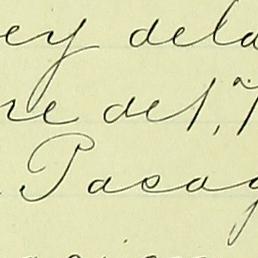 ey dela
re del,
Pasag